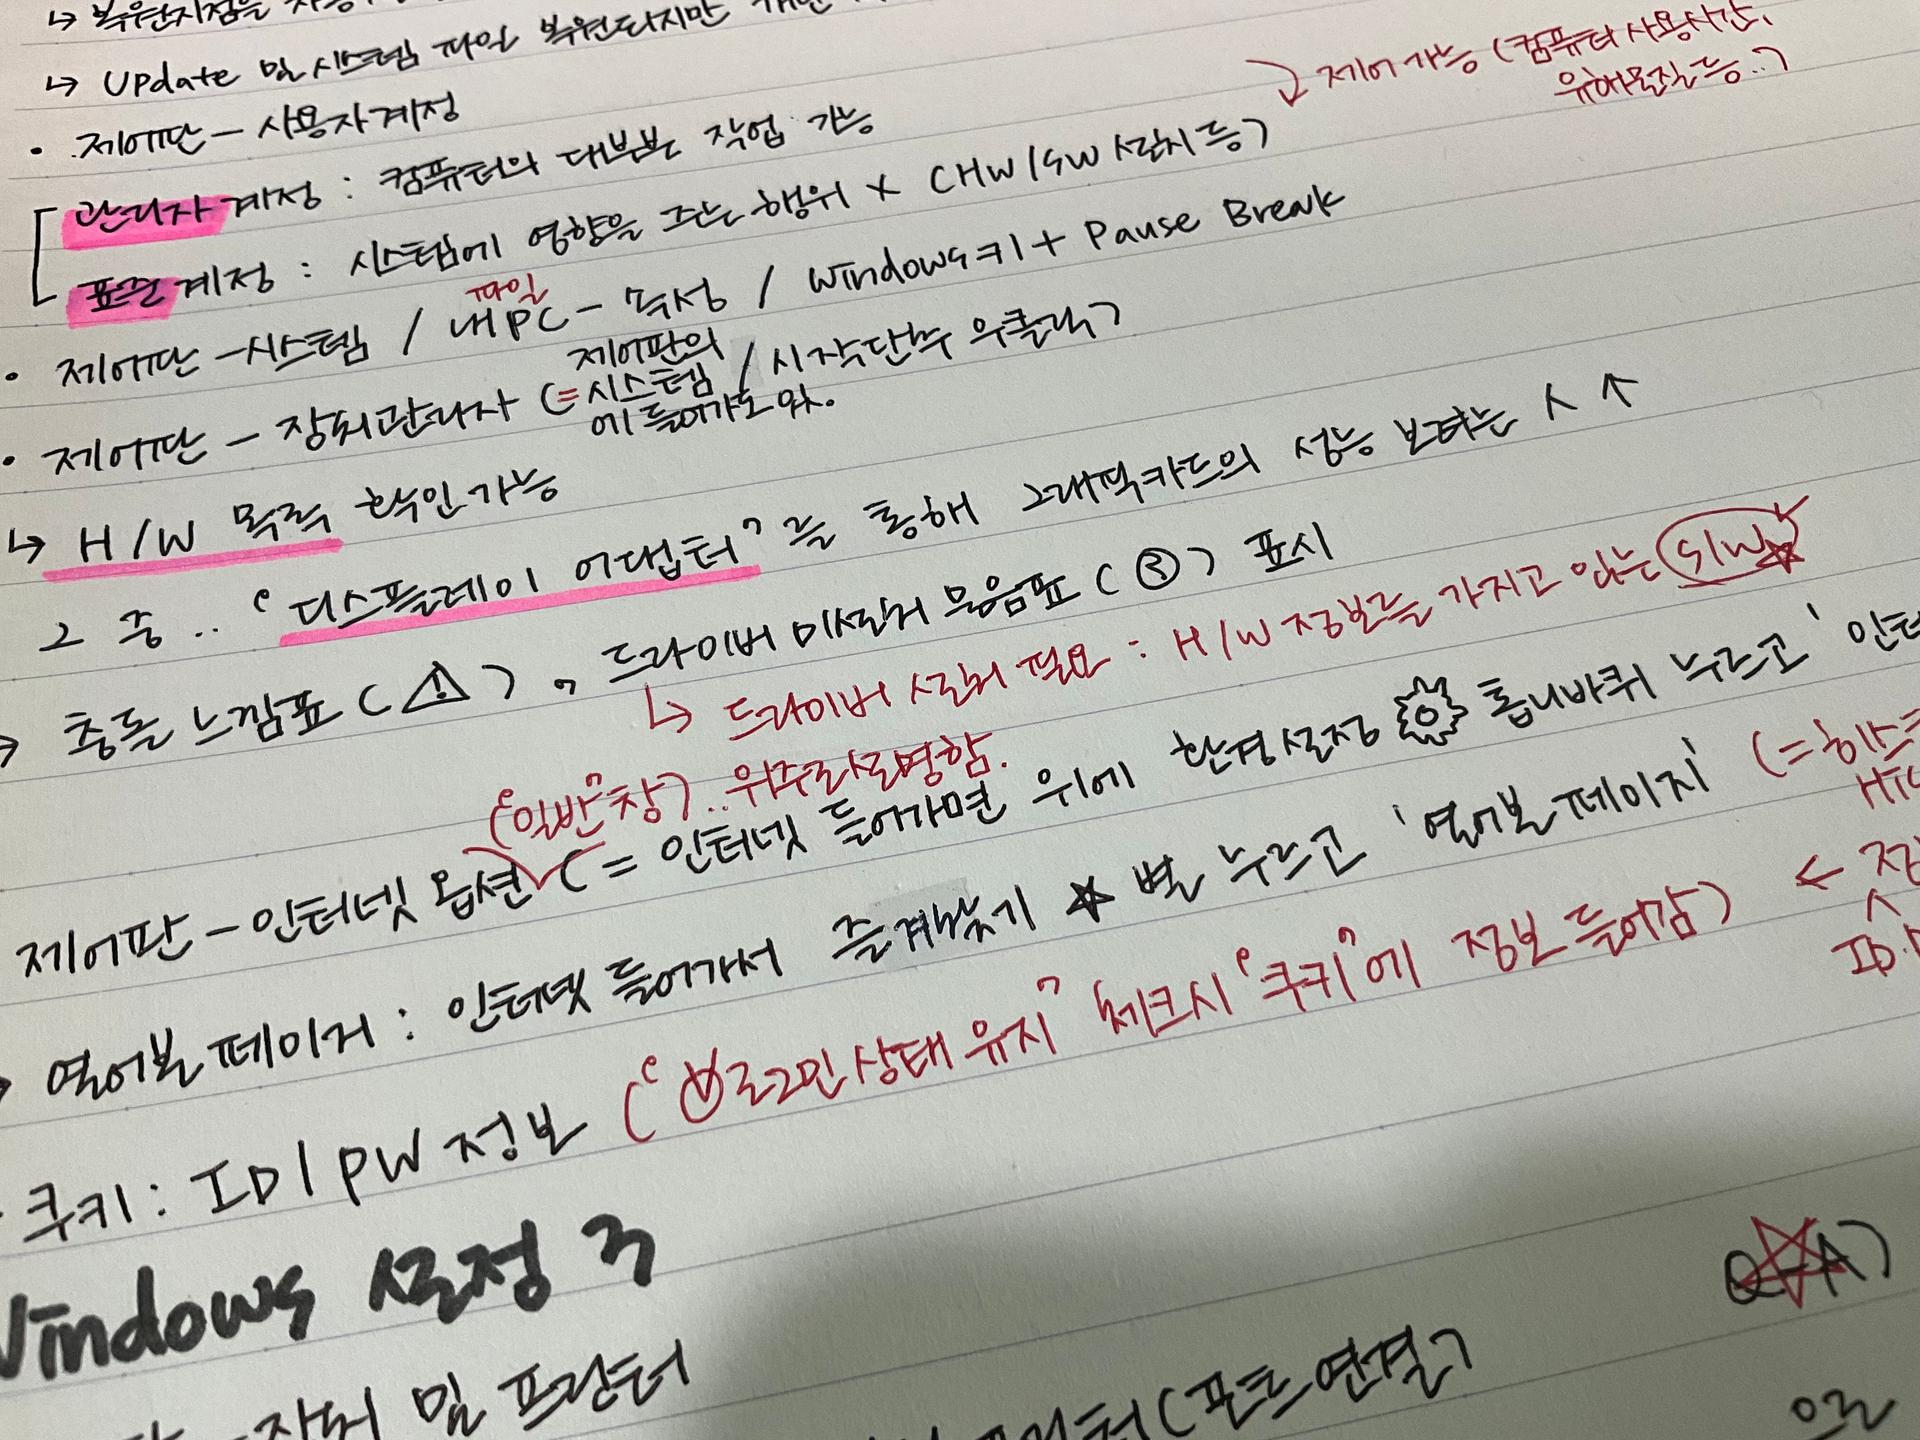 ↳ 복원지점을
↳ Update 및 시스템 파일 복원되지만
• 제어판 - 사용자계정
↓ 제어가능 (컴퓨터 사용시간,
유해물질 등..)
관리자 계정 : 컴퓨터의 대부분 작업 가능
표준 계정 : 시스템에 영향을 주는 행위 X (HW/SW 설치 등)
파일
• 제어판 - 시스템 / 내PC - 속성 / Windows키 + Pause Break
• 제어판 - 장치관리자 (= 제어판의 시스템에 들어가도 와. / 시작단추 우클릭)
↳ H/W 목록 확인가능
그 중.. "디스플레이 어댑터"를 통해 그래픽카드의 성능 보려는 ㅅ ↑
→ 충돌 느낌표 (⚠), 드라이버 미설치 물음표 (?) 표시
↳ 드라이버 설치 필요 : H/W 정보를 가지고 있는 S/W☆
("일반"창)..위주라 설명함.
제어판 - 인터넷 옵션 (= 인터넷 들어가면 위에 환경설정 ⚙ 톱니바퀴 누르고 '인터
→ 열어본 페이지 : 인터넷 들어가서 즐겨찾기 ★ 별 누르고 '열어본 페이지' (=히스
쿠키 : ID/PW 정보 ("로그인 상태 유지" 체크시 "쿠키"에 정보 들어감) ←
Windows 설정 3
장치 및 프린터
(포트 연결)